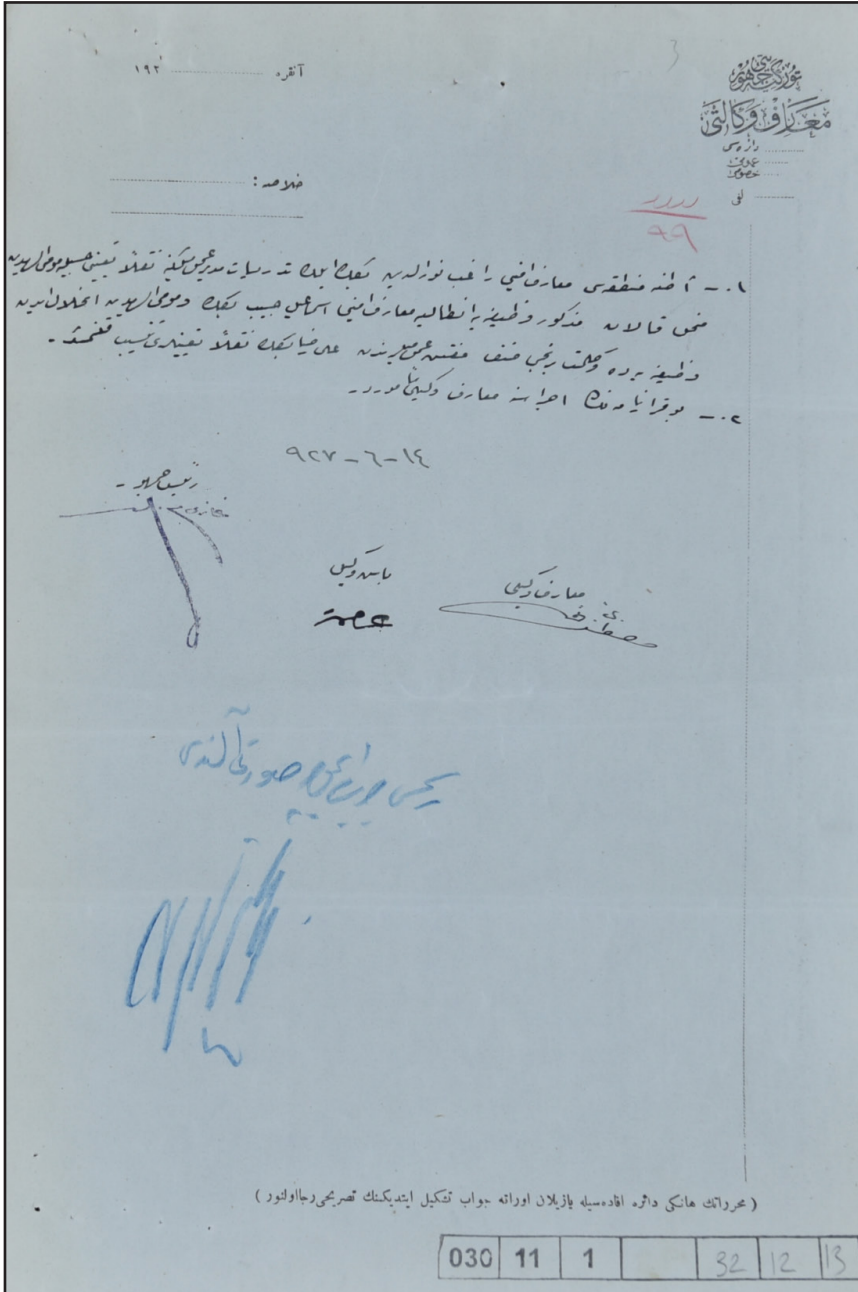 آنقره ........ ۱۹۲
توركيه جمهوريتی
معارف وكالتی
دائره‌سی
عمومی
خصوصی
لفی
خلاصه :
۹۹
۱ـ. آطنه منطقه‌سی معارف امینی راغب نورالدین بك ایلك تدریسات مدیر عمومیلكنه نقلاً تعیینی حسبیله مومی الیهدن
منحل قالان مذكور وظیفه‌یه انطالیه معارف امینی اسماعیل حبیب بكك و مومی الیهدن انحلال ایدن
وظیفه‌یه ده برنجی صنف مفتش عمومیلردن علی ضیا بكك نقلاً تعیینلری تنسیب قلنمشدر.
۲ـ. بو قرارنامه‌نك اجراسنه معارف وكیلی مأموردر.
۱٤-٦-۹۲۷
رئیس جمهور
غازی م. كمال
باش وكیل
عصمت
معارف وكیلی
مصطفی نجاتی
صورتی آلندی
( محرراتك هانكی دائره افاده‌سیله یازیلان اوراقه جواب تشكیل ایتدیكنك تصریحی رجا اولنور )
030 11 1 32 12 13